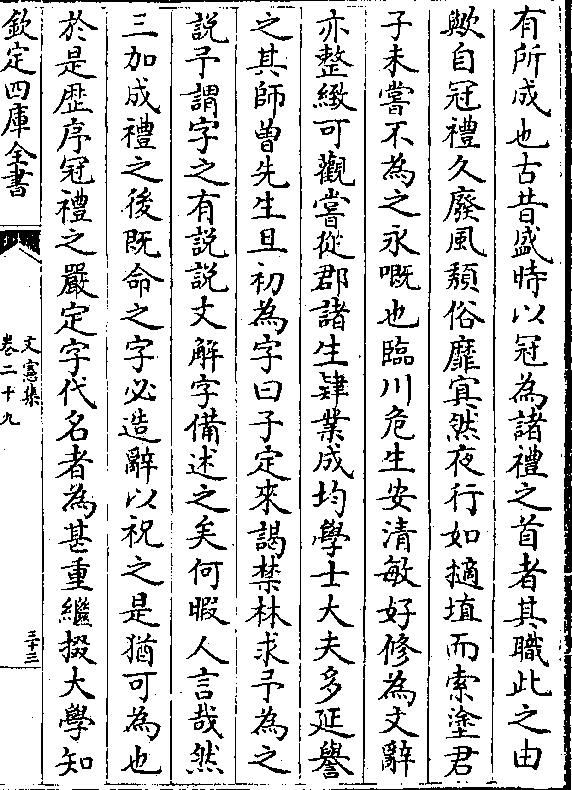 有所成也古昔盛時以冠為諸禮之首者其職此之由
歟自冠禮久廢風頽俗靡寘然夜行如擿埴而索塗君
子未嘗不為之永嘅也臨川危生安清敏好修為文辭
亦整緻可觀嘗從郡諸生肄業成均學士大夫多延譽
之其師曽先生旦初為字曰子定來謁禁林求予為之
説予謂字之有説説文解字備述之矣何暇人言哉然
三加成禮之後既命之字必造辭以祝之是猶可為也
於是歴序冠禮之嚴定字代名者為甚重繼掇大學知
欽定四庫全書
文憲集
卷二十九
三十三